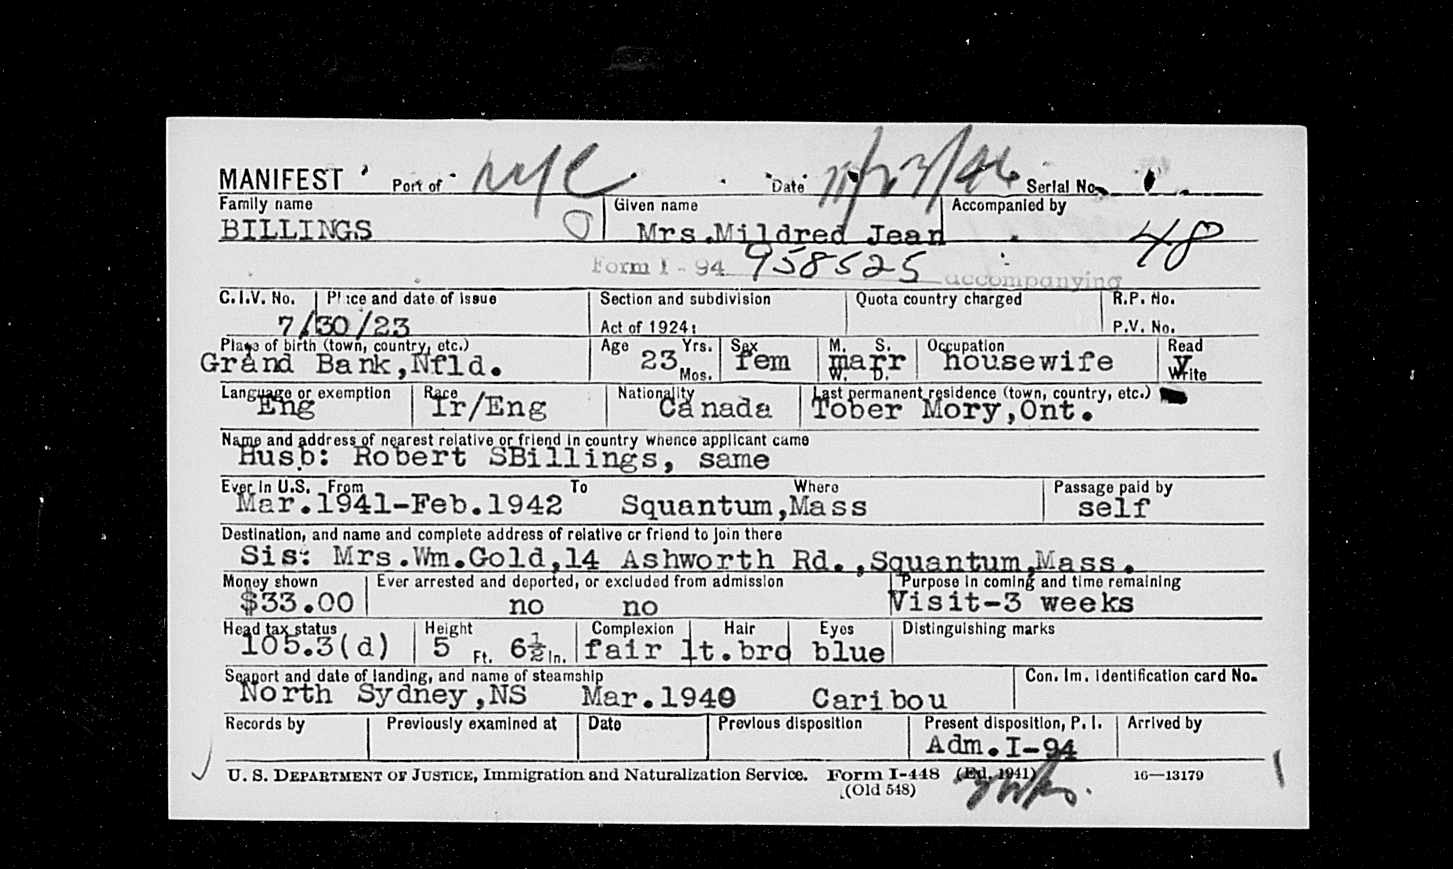 MANIFEST Port of Date Serial No.
Family name Given name Accompanied by
BILLINGS Mrs.Mildred Jean 48
Form I - 94 958525 accompanying
C.I.V. No. Place and date of issue Section and subdivision Quota country charged R.P. No.
7/30/23 Act of 1924: P.V. No.
Place of birth (town, country, etc.) Age Yrs. Sex M. S. Occupation Read
Grand Bank,Nfld. 23 Mos. fem marr W. D. housewife y Write
Language or exemption Race Nationality Last permanent residence (town, country, etc.)
Eng Ir/Eng Canada Tober Mory,Ont.
Name and address of nearest relative or friend in country whence applicant came
Husb: Robert SBillings, same
Ever in U.S. From To Where Passage paid by
Mar.1941-Feb.1942 Squantum,Mass self
Destination, and name and complete address of relative or friend to join there
Sis: Mrs.Wm.Gold,14 Ashworth Rd.,Squantum,Mass.
Money shown Ever arrested and deported, or excluded from admission Purpose in coming and time remaining
$33.00 no no Visit-3 weeks
Head tax status Height Complexion Hair Eyes Distinguishing marks
105.3(d) 5 Ft. 6½ In. fair lt.bro blue
Seaport and date of landing, and name of steamship Con. Im. Identification card No.
North Sydney,NS Mar.1940 Caribou
Records by Previously examined at Date Previous disposition Present disposition, P. I. Arrived by
Adm.I-94
U. S. DEPARTMENT OF JUSTICE, Immigration and Naturalization Service. Form I-448 (Ed. 1941) 16—13179
(Old 548)